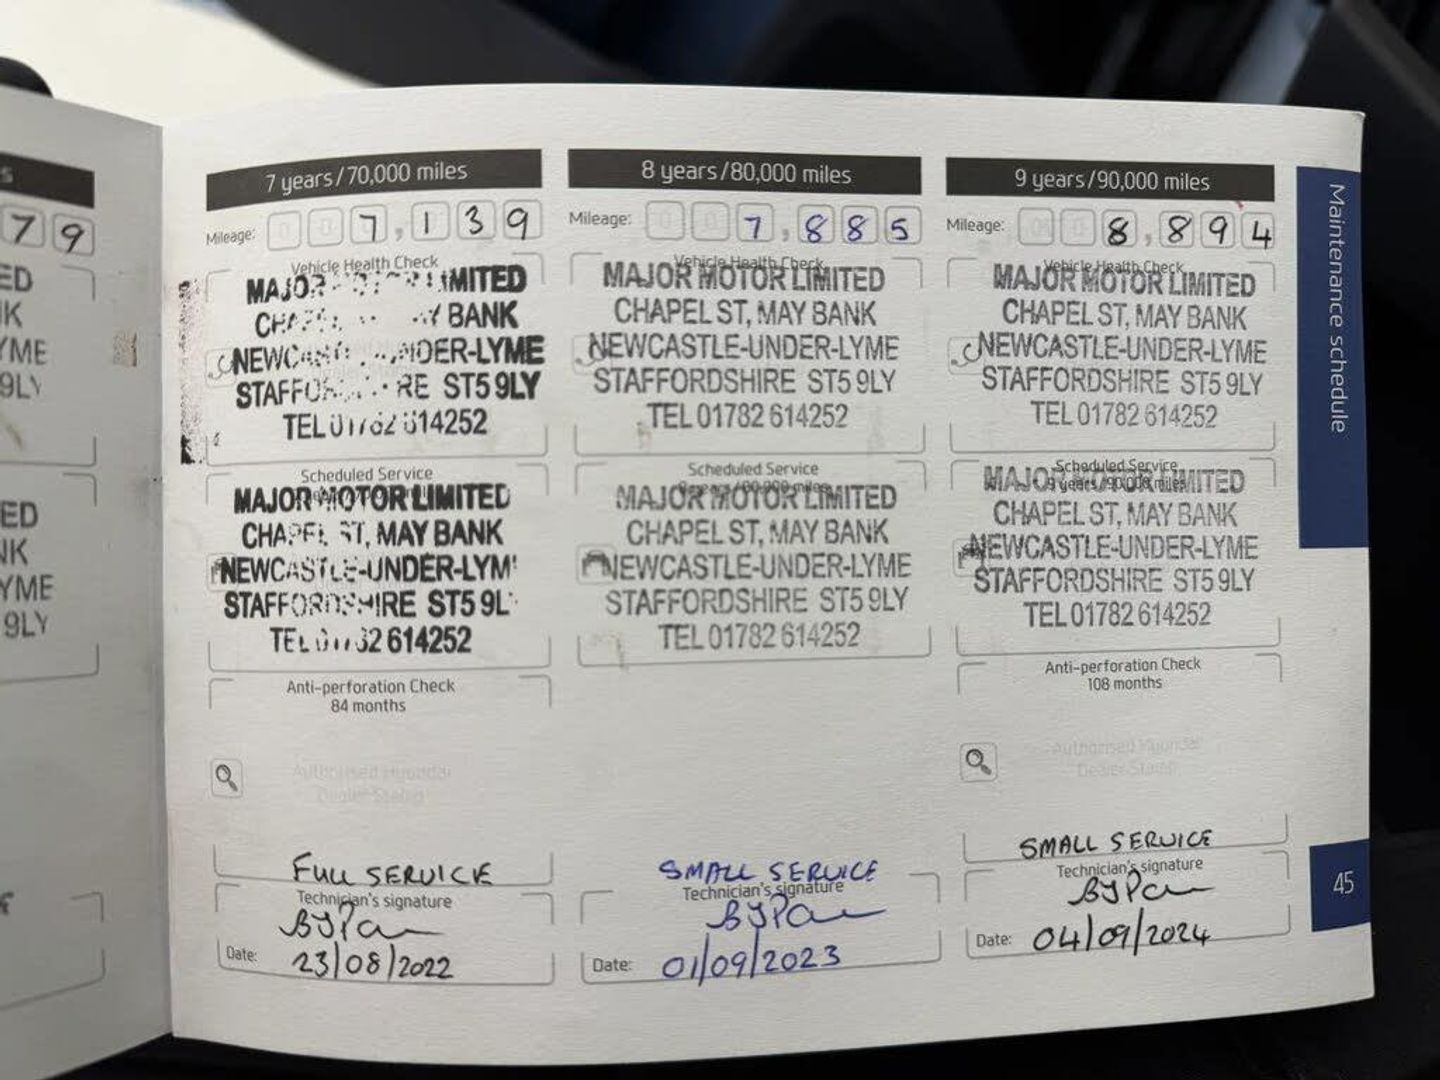 s
79
ED
NK
YME
9LY
ED
NK
YME
9LY
7 years/70,000 miles
Mileage: 007,139
Vehicle Health Check
MAJOR LIMITED
BANK
NEWCASTLE-UNDER-LYME
STAFFORDSHIRE ST5 9LY
TEL 01782 614252
Scheduled Service
MAJOR MOTOR LIMITED
CHAPEL ST, MAY BANK
NEWCASTLE-UNDER-LYM
STAFFORDSHIRE ST5 9L
TEL 01782 614252
Anti-perforation Check
84 months
Authorised Hyundai
Dealer Stamp
FULL SERVICE
Technician's signature
Date: 23/08/2022
8 years/80,000 miles
Mileage: 007,885
Vehicle Health Check
MAJOR MOTOR LIMITED
CHAPEL ST, MAY BANK
NEWCASTLE-UNDER-LYME
STAFFORDSHIRE ST5 9LY
TEL 01782 614252
Scheduled Service
MAJOR MOTOR LIMITED
CHAPEL ST, MAY BANK
NEWCASTLE-UNDER-LYME
STAFFORDSHIRE ST5 9LY
TEL 01782 614252
SMALL SERVICE
Technician's signature
Date: 01/09/2023
9 years/90,000 miles
Mileage: 008,894
Vehicle Health Check
MAJOR MOTOR LIMITED
CHAPEL ST, MAY BANK
NEWCASTLE-UNDER-LYME
STAFFORDSHIRE ST5 9LY
TEL 01782 614252
Scheduled Service
9 years/90,000 miles
MAJOR MOTOR LIMITED
CHAPEL ST, MAY BANK
NEWCASTLE-UNDER-LYME
STAFFORDSHIRE ST5 9LY
TEL 01782 614252
Anti-perforation Check
108 months
Authorised Hyundai
Dealer Stamp
SMALL SERVICE
Technician's signature
Date: 04/09/2024
Maintenance schedule
45